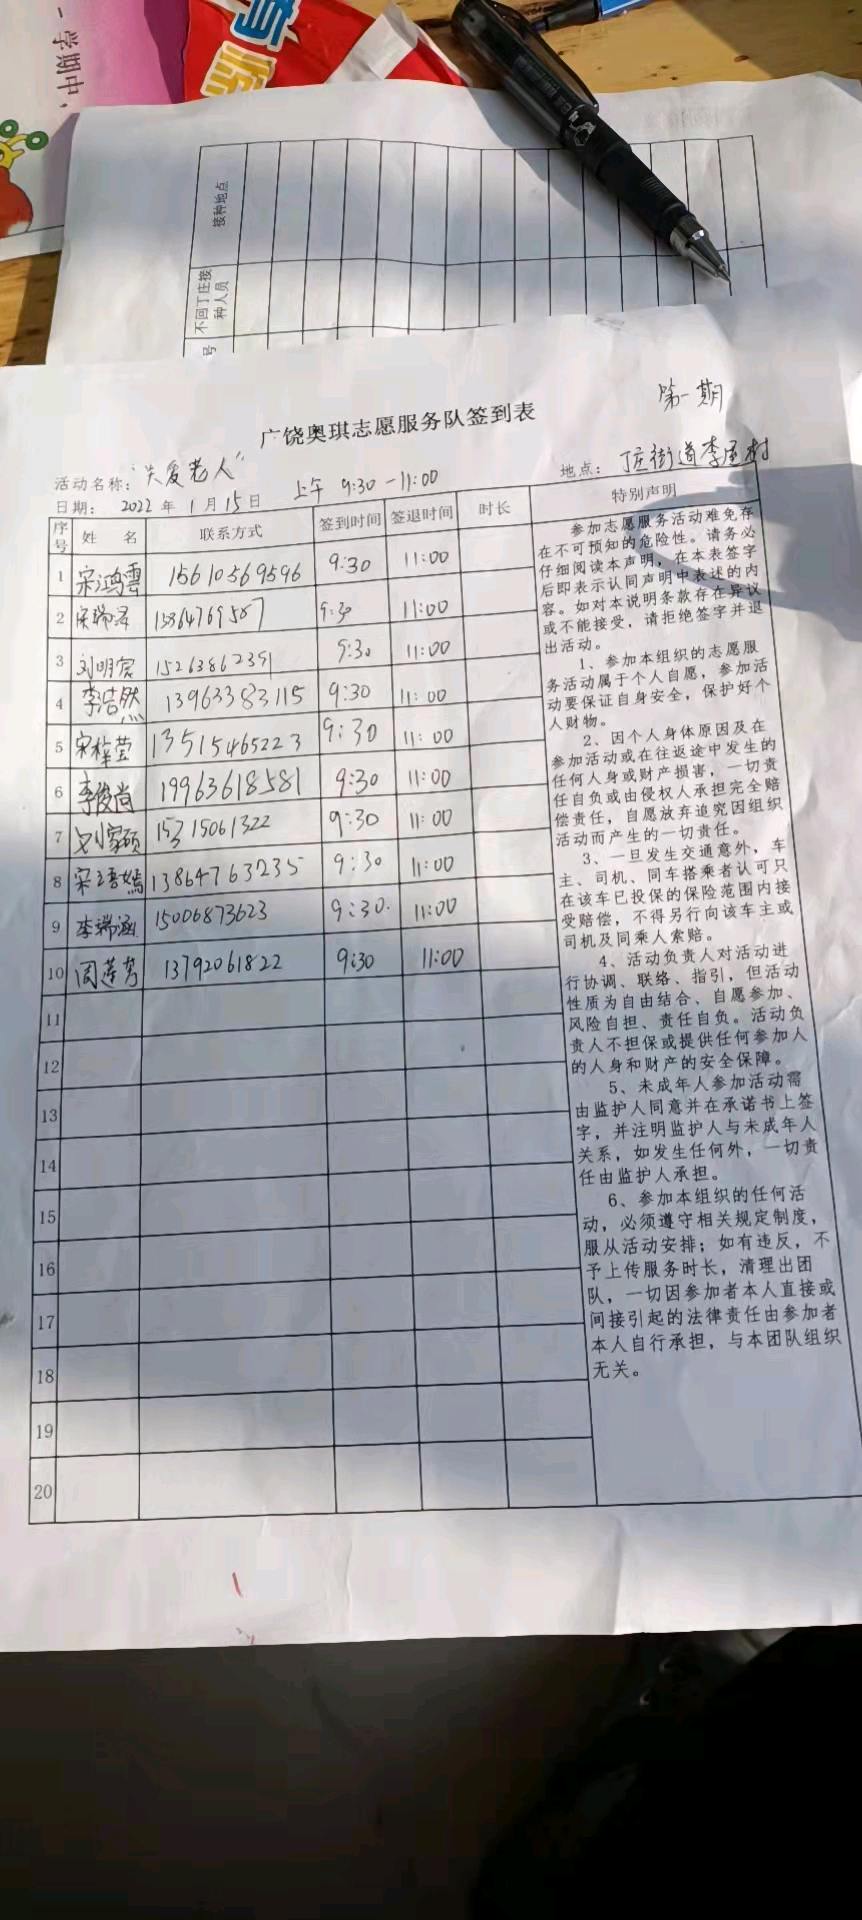 一学期中、
接种地点
不回丁庄接
种人员
号
第一期
广饶奥琪志愿服务队签到表
活动名称：“关爱老人”
地点：丁庄街道李屋村
日期： 2022 年 1 月 15 日 上午 9:30－11:00
序号 姓 名 联系方式 签到时间 签退时间 时长 特别声明
1 宋鸿雲 15610569596 9:30 11:00
2 宋瑞泽 13864769587 9:30 11:00
3 刘明宸 15263862391 9:30 11:00
4 李浩然 13963383115 9:30 11:00
5 宋梓莹 13515465223 9:30 11:00
6 李俊尚 19963618581 9:30 11:00
7 刘家硕 15315061322 9:30 11:00
8 宋语嫣 13864763235 9:30 11:00
9 李瑞涵 15006873623 9:30 11:00
10 周莲芳 13792061822 9:30 11:00
11
12
13
14
15
16
17
18
19
20
参加志愿服务活动难免存
在不可预知的危险性。请务必
仔细阅读本声明，在本表签字
后即表示认同声明中表述的内
容。如对本说明条款存在异议
或不能接受，请拒绝签字并退
出活动。
1、参加本组织的志愿服
务活动属于个人自愿，参加活
动要保证自身安全，保护好个
人财物。
2、因个人身体原因及在
参加活动或在往返途中发生的
任何人身或财产损害，一切责
任自负或由侵权人承担完全赔
偿责任，自愿放弃追究因组织
活动而产生的一切责任。
3、一旦发生交通意外，车
主、司机、同车搭乘者认可只
在该车已投保的保险范围内接
受赔偿，不得另行向该车主或
司机及同乘人索赔。
4、活动负责人对活动进
行协调、联络、指引，但活动
性质为自由结合、自愿参加、
风险自担、责任自负。活动负
责人不担保或提供任何参加人
的人身和财产的安全保障。
5、未成年人参加活动需
由监护人同意并在承诺书上签
字，并注明监护人与未成年人
关系，如发生任何外，一切责
任由监护人承担。
6、参加本组织的任何活
动，必须遵守相关规定制度，
服从活动安排；如有违反，不
予上传服务时长，清理出团
队，一切因参加者本人直接或
间接引起的法律责任由参加者
本人自行承担，与本团队组织
无关。